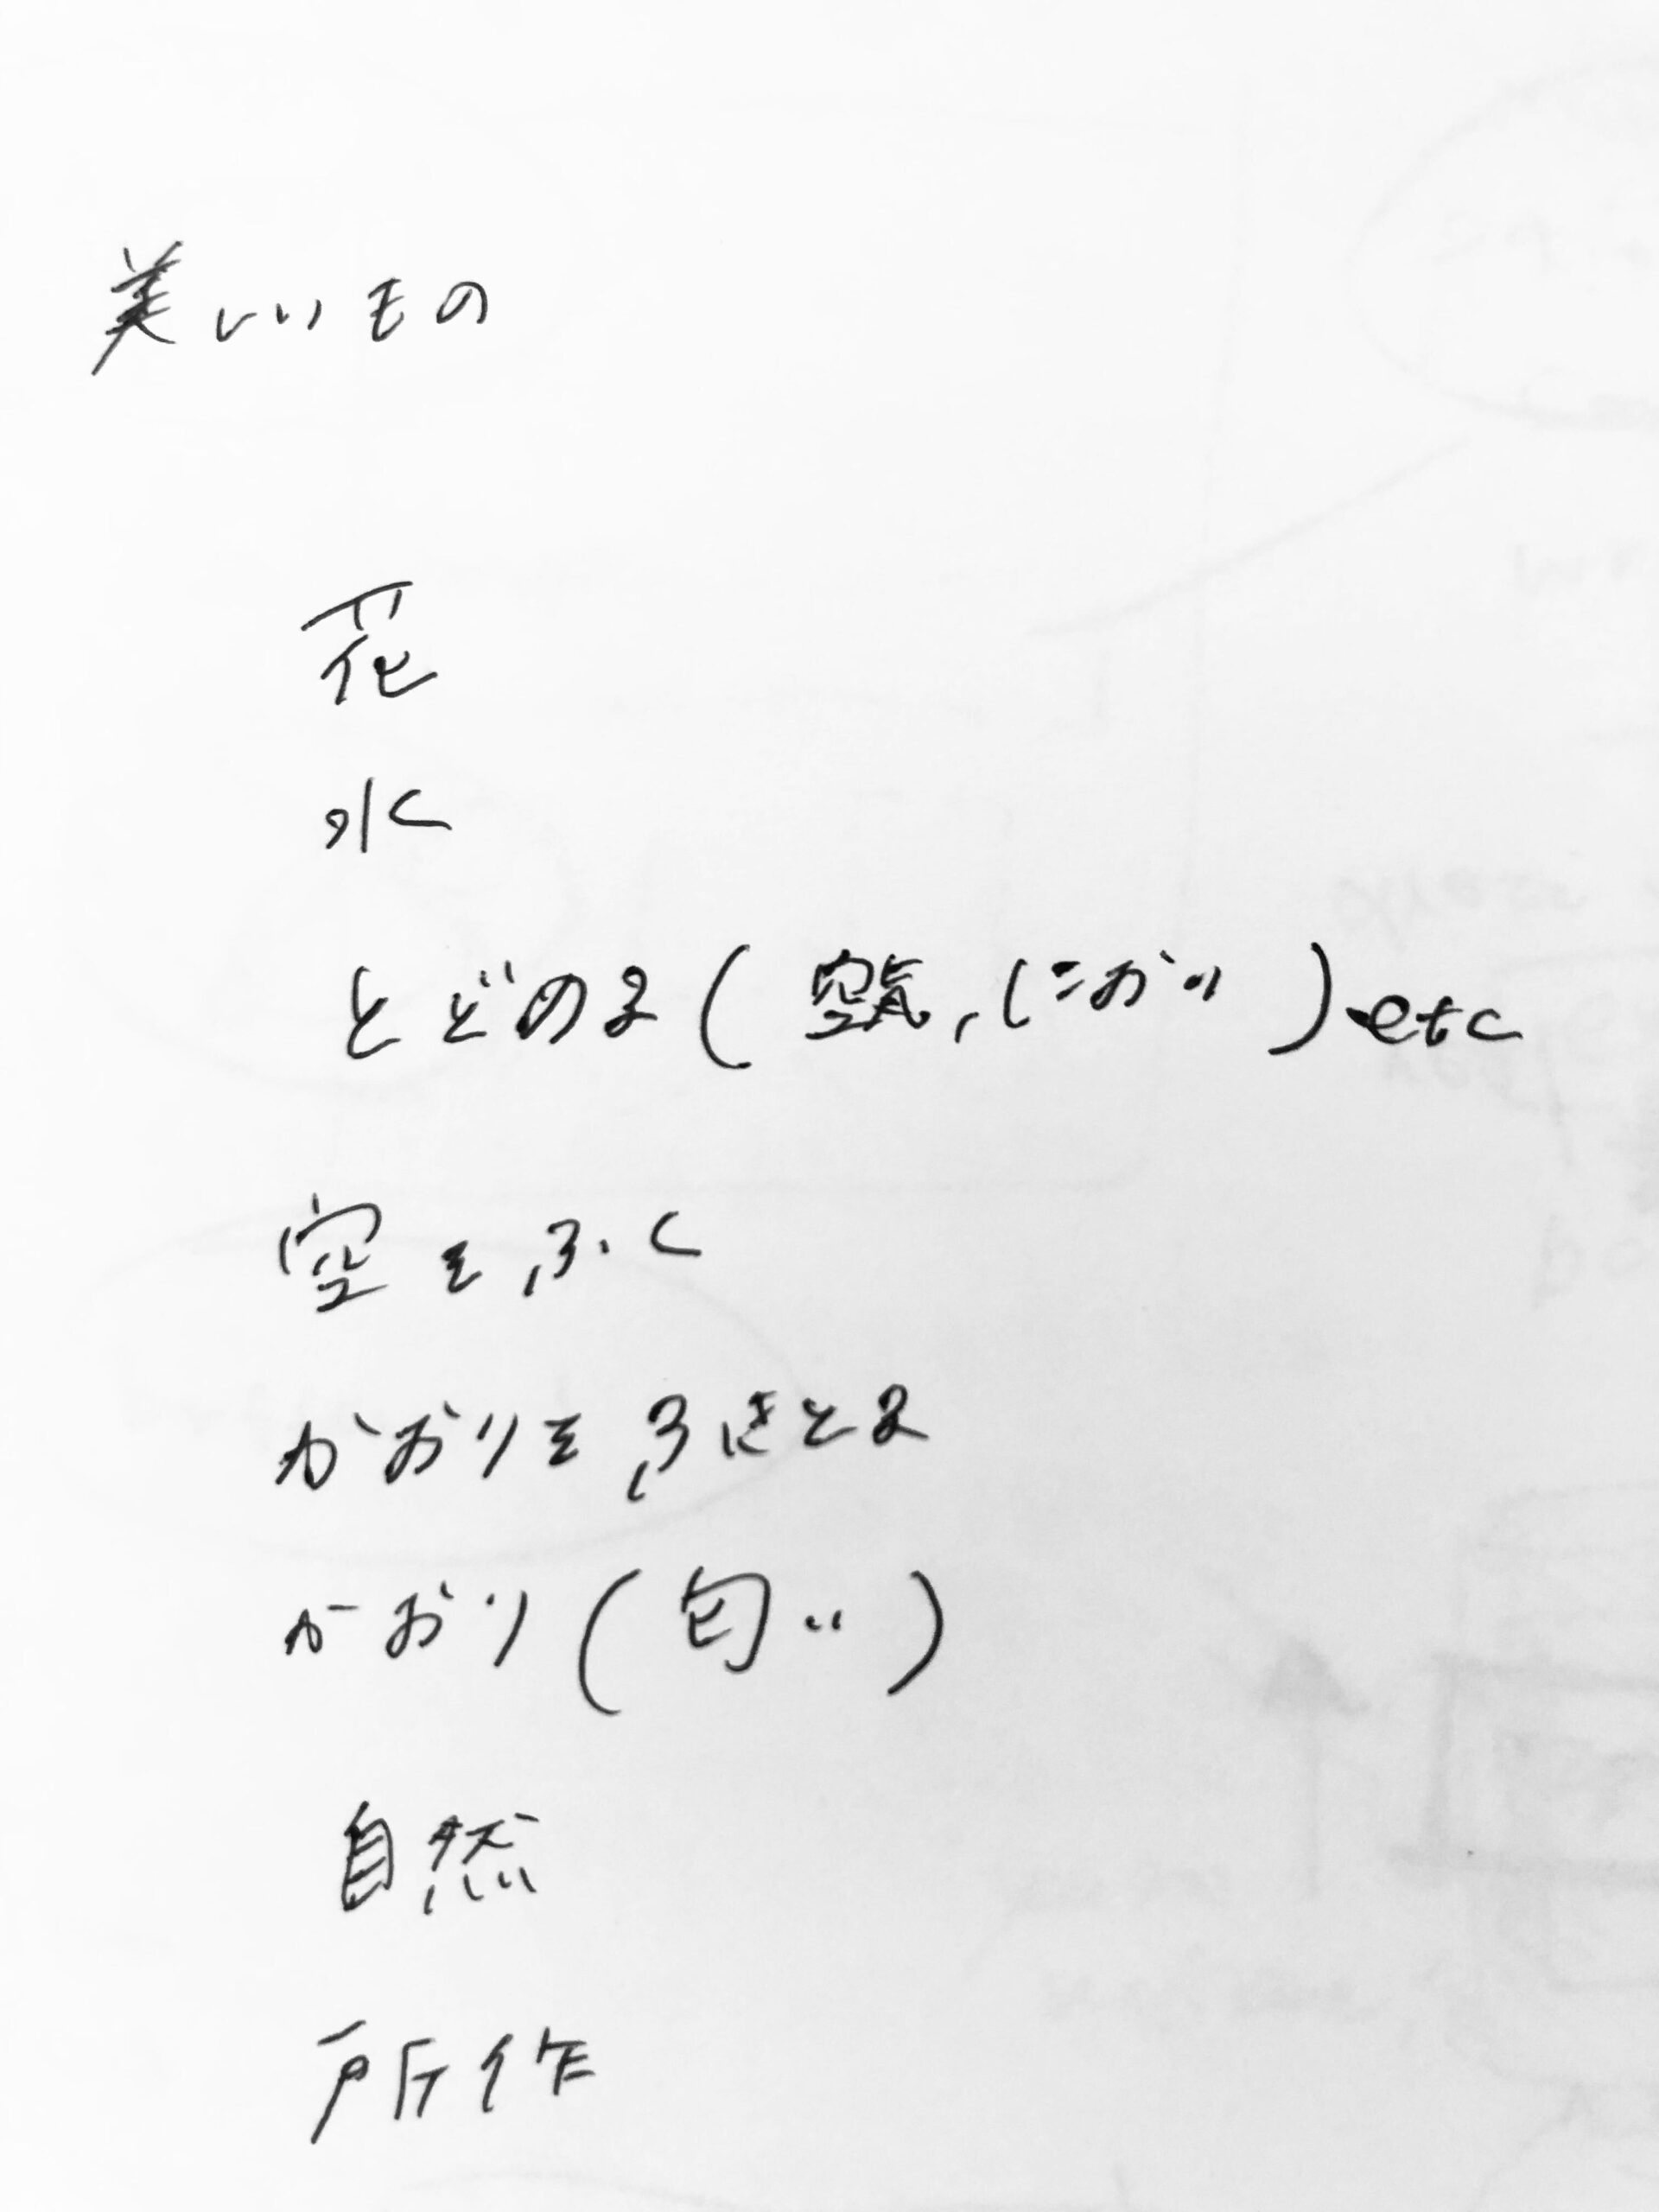 美しいもの
花
水
とどのま(空気,におい)etc
空をふく
かおりをふきとる
かおり(匂い)
自然
所作